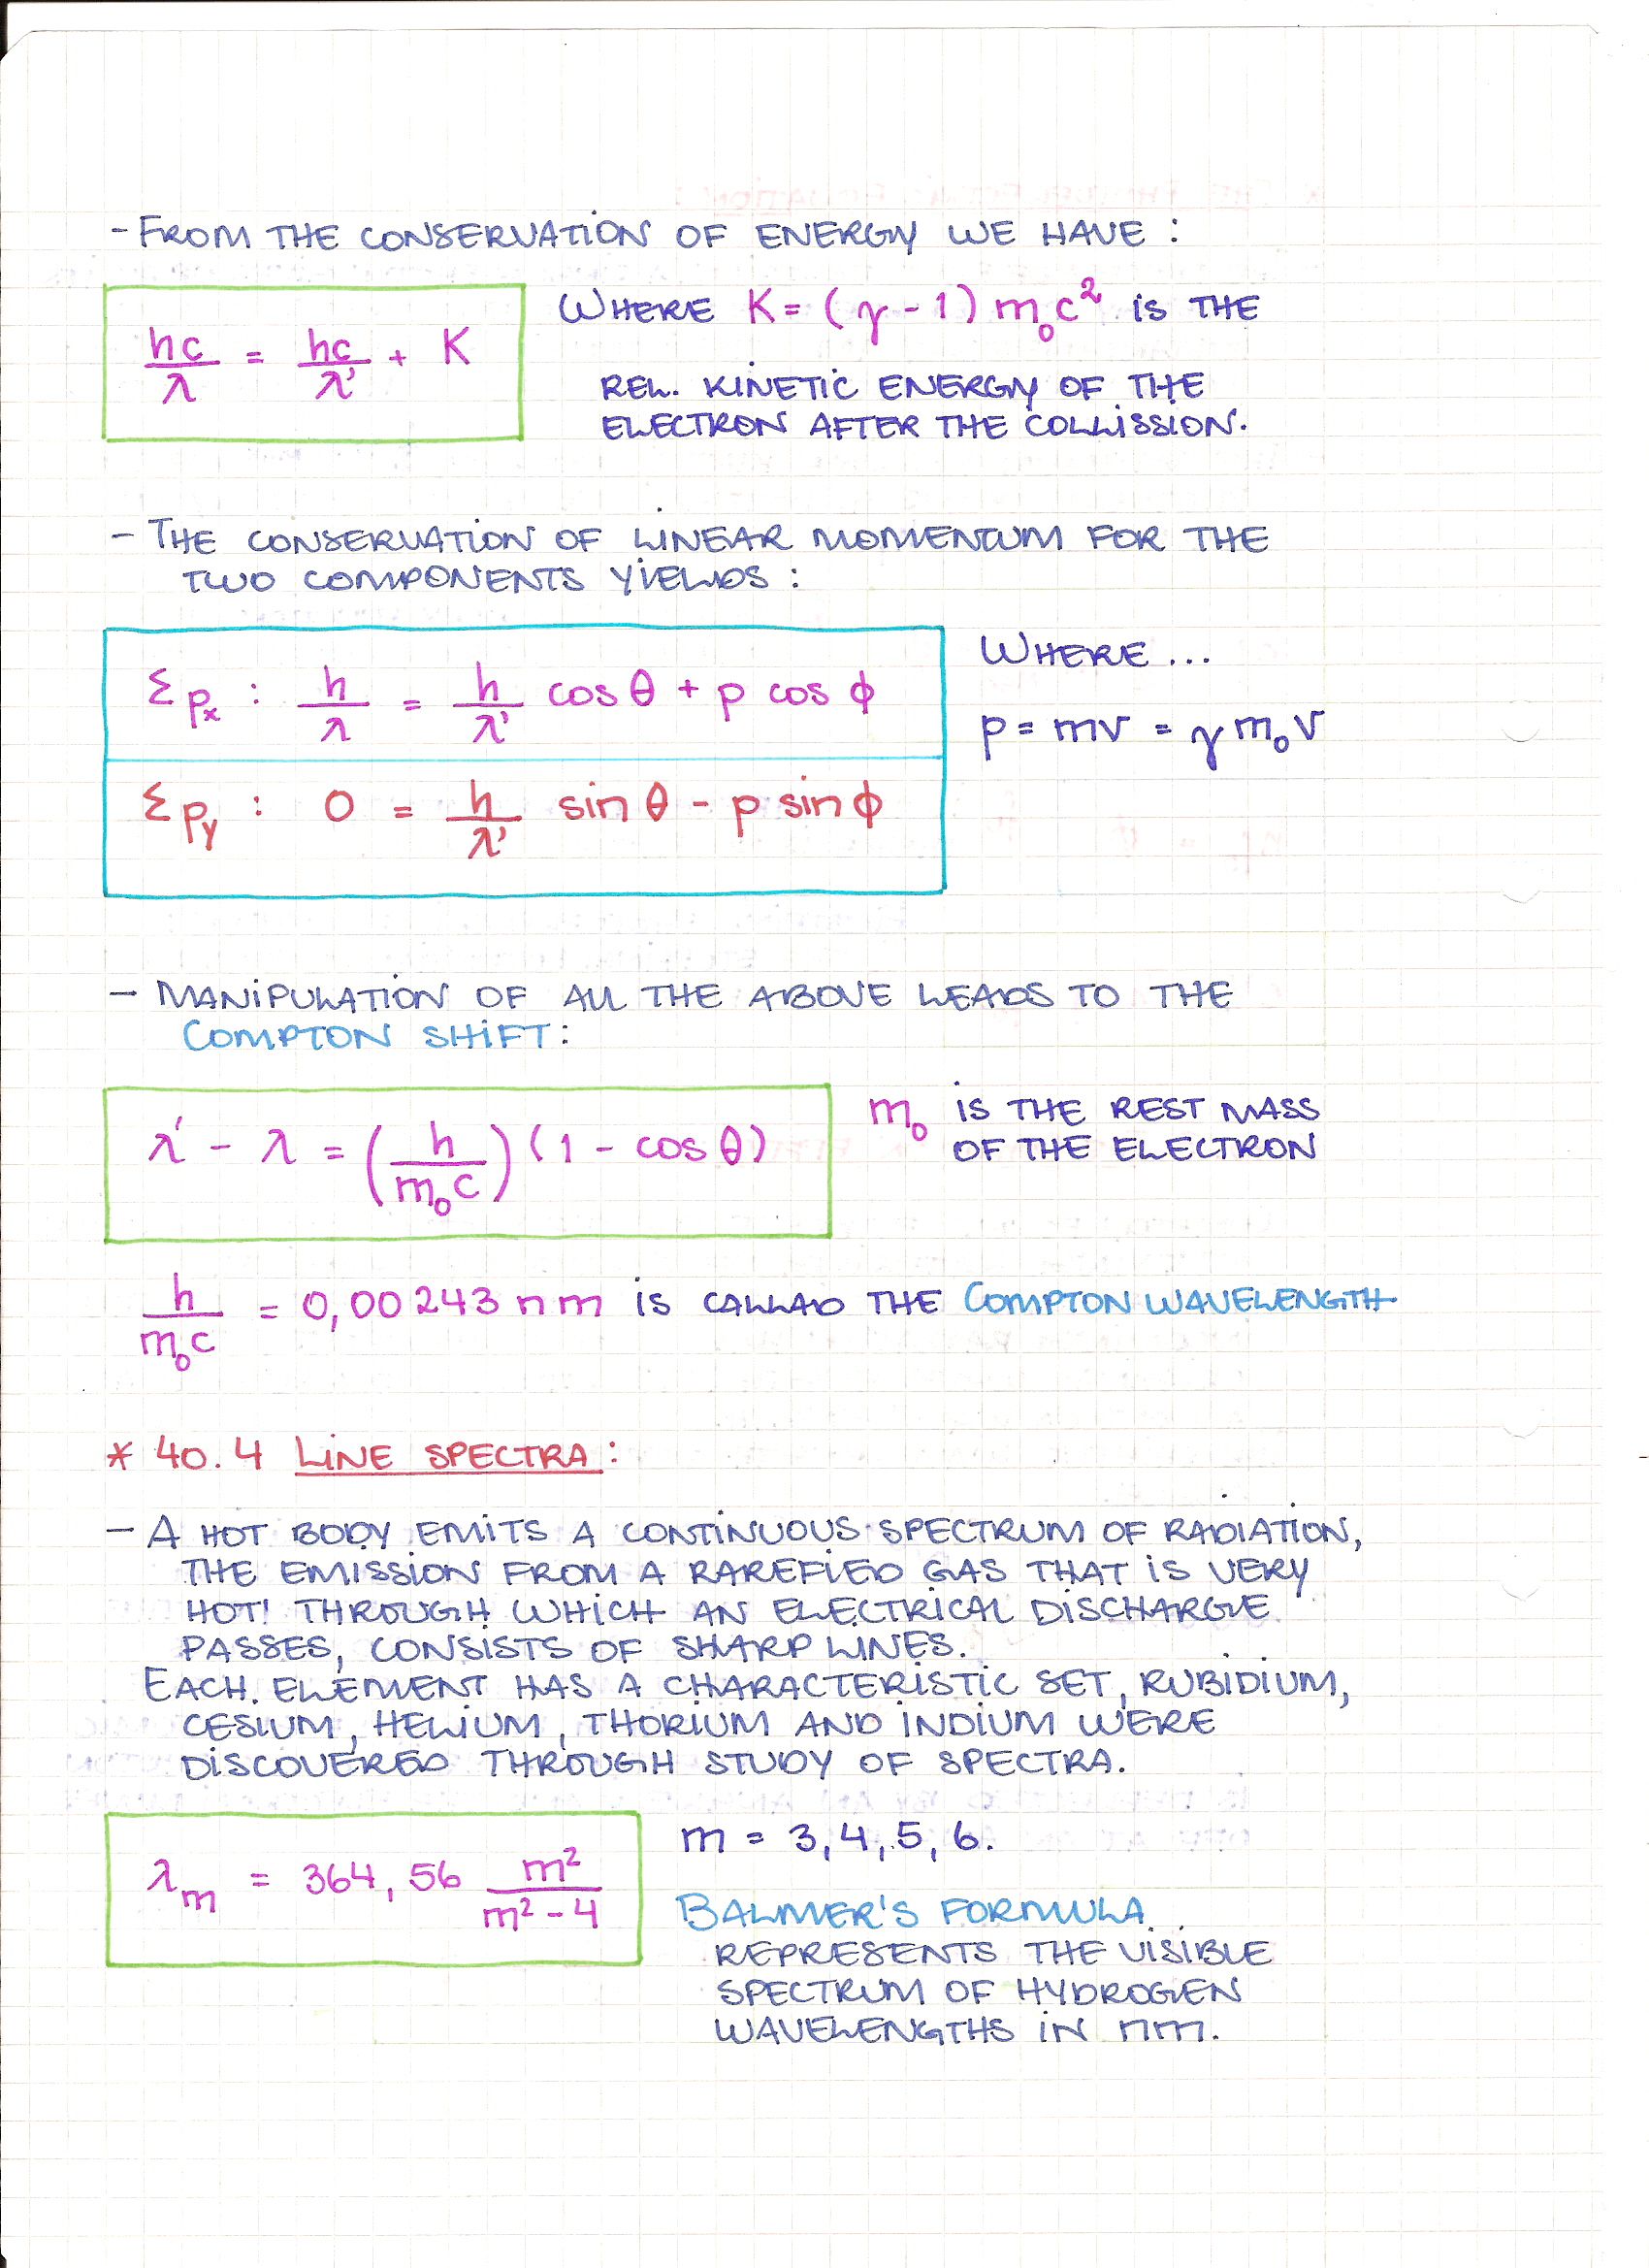 - FROM THE CONSERVATION OF ENERGY WE HAVE :
hc/λ = hc/λ' + K
WHERE K = (γ - 1) m₀c² IS THE
REL. KINETIC ENERGY OF THE
ELECTRON AFTER THE COLLISSION.
- THE CONSERVATION OF LINEAR MOMENTUM FOR THE
TWO COMPONENTS YIELDS :
Σpₓ : h/λ = h/λ' cos θ + p cos ϕ
Σp_y : 0 = h/λ' sin θ - p sin ϕ
WHERE ...
p = mv = γ m₀ v
- MANIPULATION OF ALL THE ABOVE LEADS TO THE
COMPTON SHIFT :
λ' - λ = (h/m₀c) (1 - cos θ)
m₀ IS THE REST MASS
OF THE ELECTRON
h/m₀c = 0,00243 nm IS CALLAD THE COMPTON WAVELENGTH
* 40.4 LINE SPECTRA :
- A HOT BODY EMITS A CONTINUOUS SPECTRUM OF RADIATION,
THE EMISSION FROM A RAREFIED GAS THAT IS VERY
HOT! THROUGH WHICH AN ELECTRICAL DISCHARGE
PASSES, CONSISTS OF SHARP LINES.
EACH ELEMENT HAS A CHARACTERISTIC SET, RUBIDIUM,
CESIUM, HELIUM, THORIUM AND INDIUM WERE
DISCOVERED THROUGH STUDY OF SPECTRA.
λₘ = 364,56 m²/(m² - 4)
m = 3, 4, 5, 6.
BALMER'S FORMULA
REPRESENTS THE VISIBLE
SPECTRUM OF HYDROGEN
WAVELENGTHS IN nm.